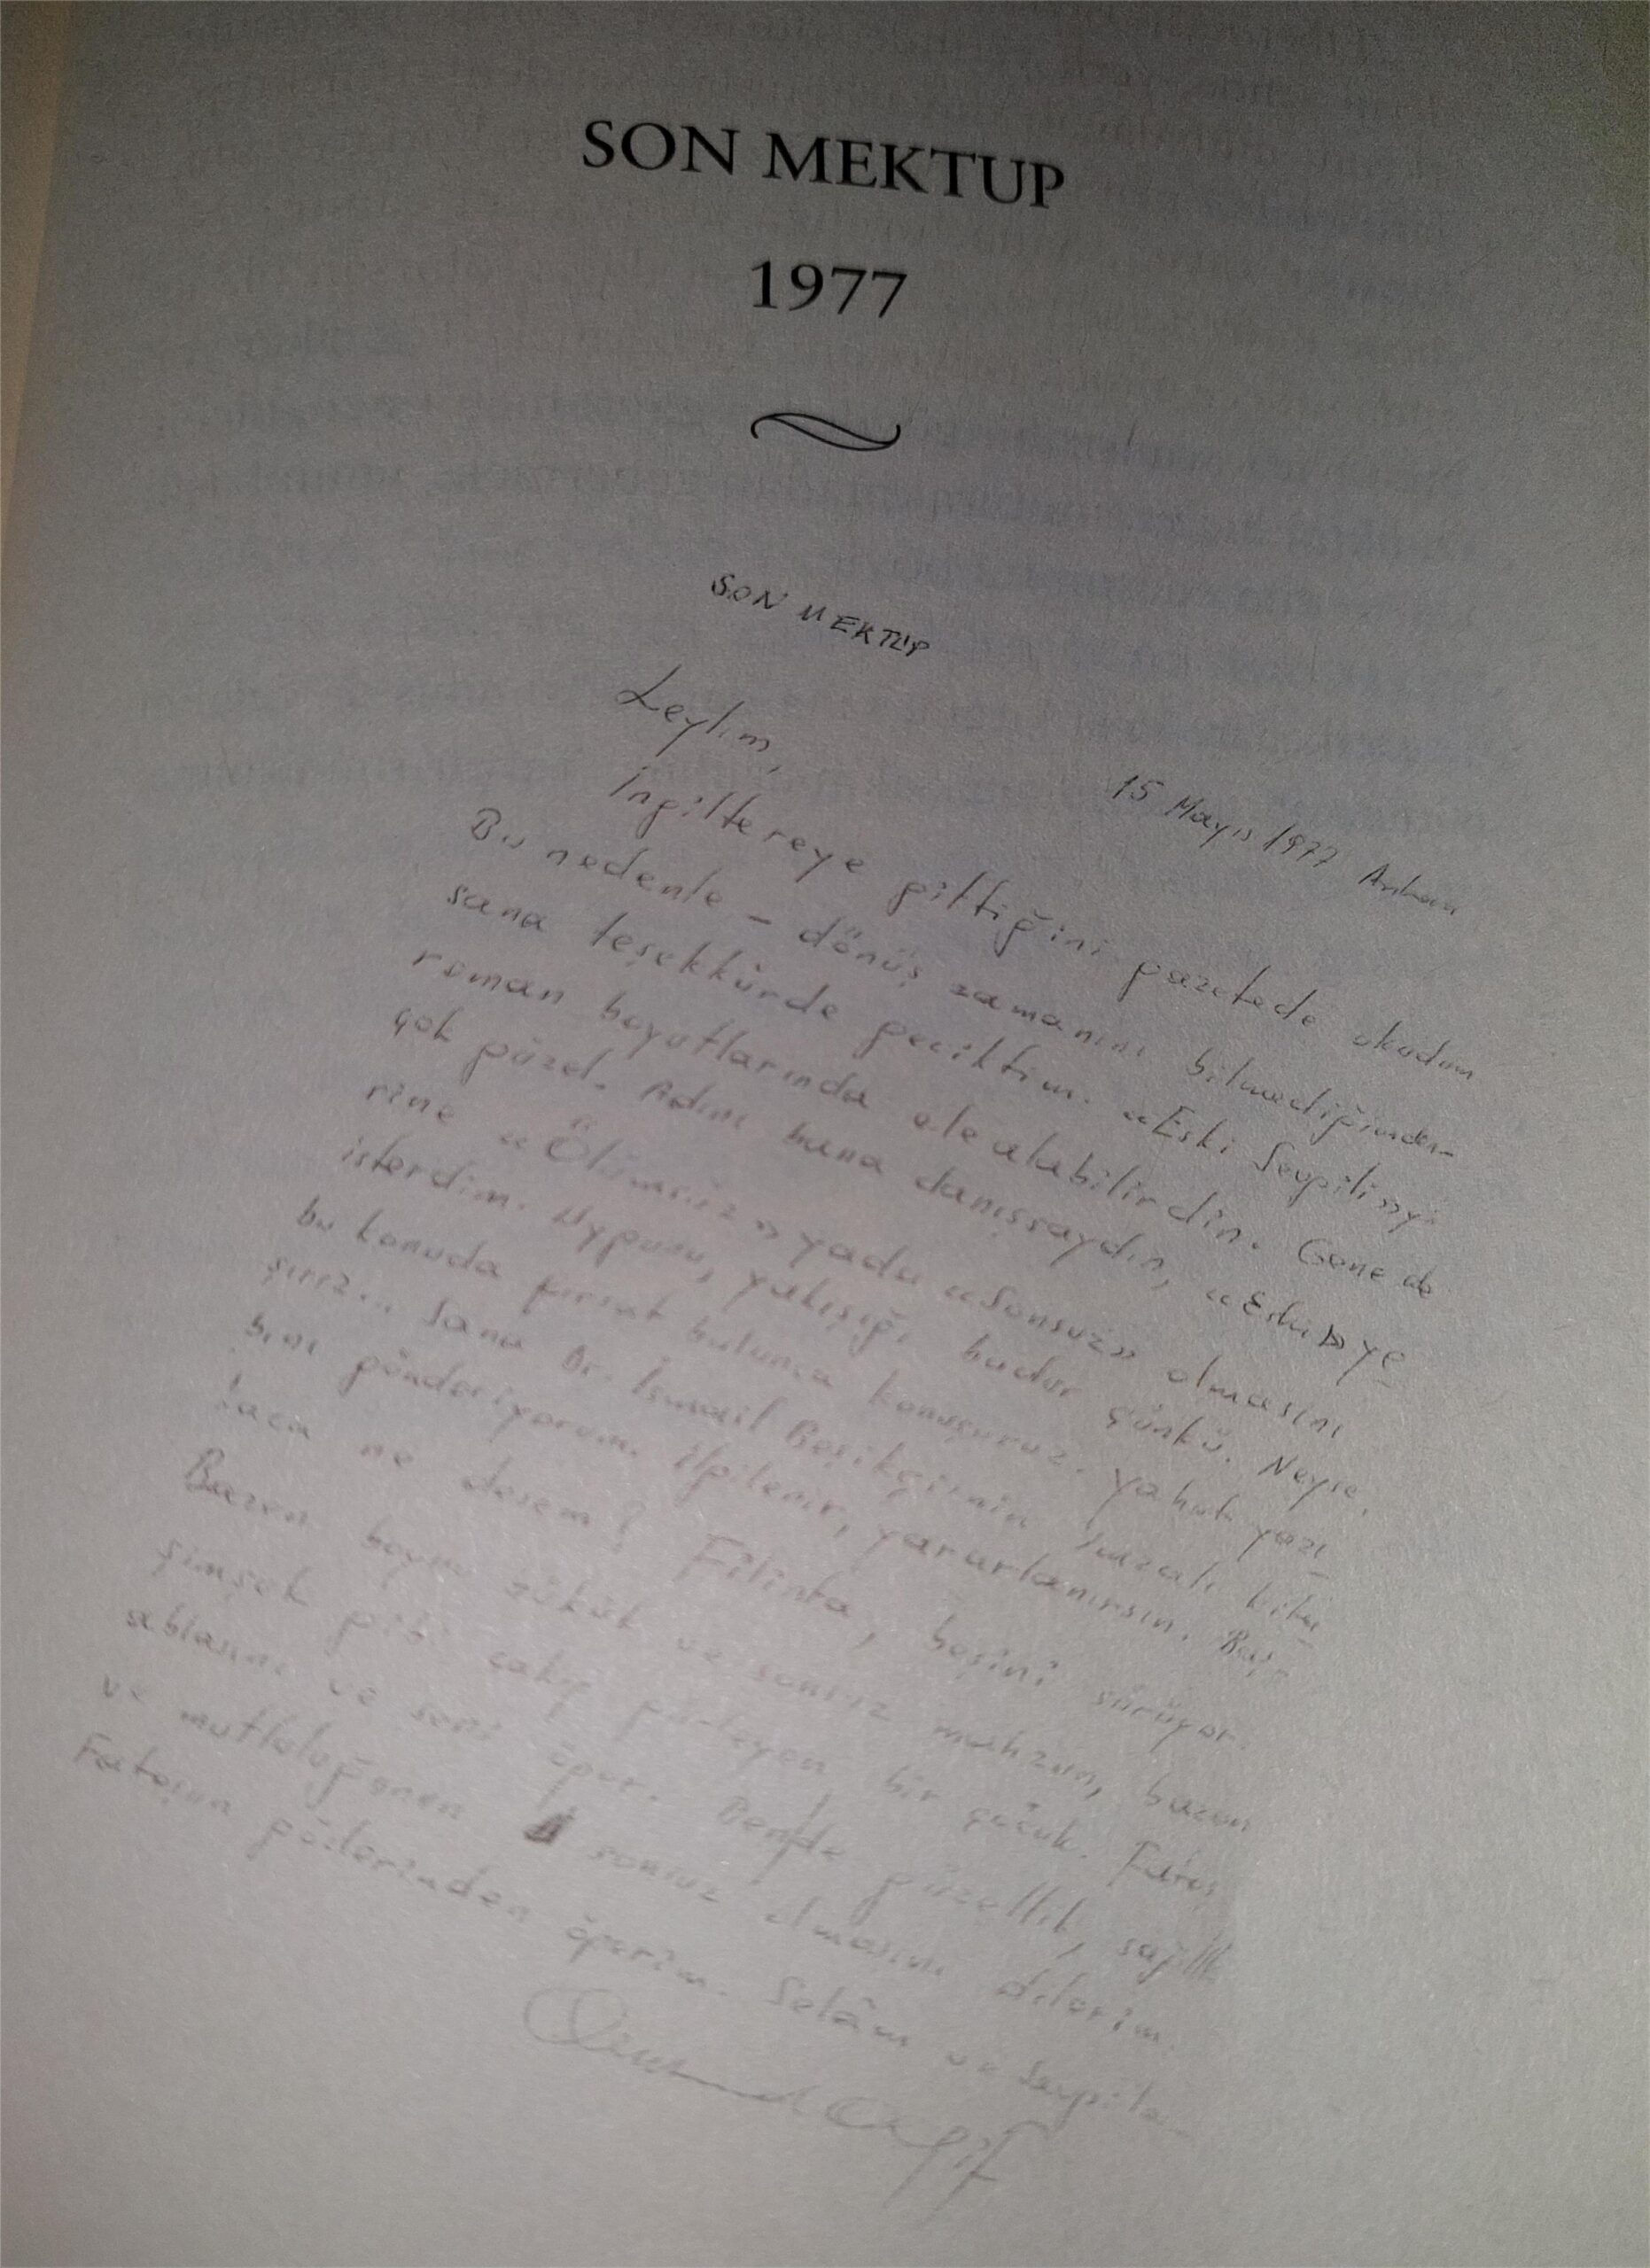 SON MEKTUP
1977
SON MEKTUP
15 Mayıs 1977 Ankara
Leylım,
İngiltereye gittiğini gazetede okudum
Bu nedenle - dönüş zamanını bilmediğimden-
sana teşekkürde geciktim. "Eski Sevgili"yi
roman boyutlarında ele alabilirdin. Gene de
çok güzel. Adını bana danışsaydın, "Eski" ye-
rine "Ölümsüz" yada "Sonsuz" olmasını
isterdim. Uygunu, yakışığı budur çünkü. Neyse,
bu konuda fırsat bulunca konuşuruz. Yahut yazı-
şırız... Sana Dr. İsmail Beşikçi'nin imzalı kita-
bını gönderiyorum. İlgilenir, yararlanırsın. Baş-
kaca ne desem? Filinta, beşini sürüyor.
Bazen boynu bükük ve sonsuz mahzun, bazan
şimşek gibi çakıp gürleyen bir çocuk. Fatoş
ablasını ve seni öper. Bende güzellik, sağlık
ve mutluluğunun sonsuz olmasını dilerim.
Fatoşun gözlerinden öperim. Selâm ve Sevgile